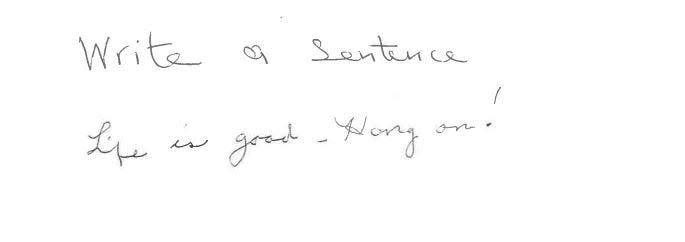 Write a Sentence
Life is good - Hang on!